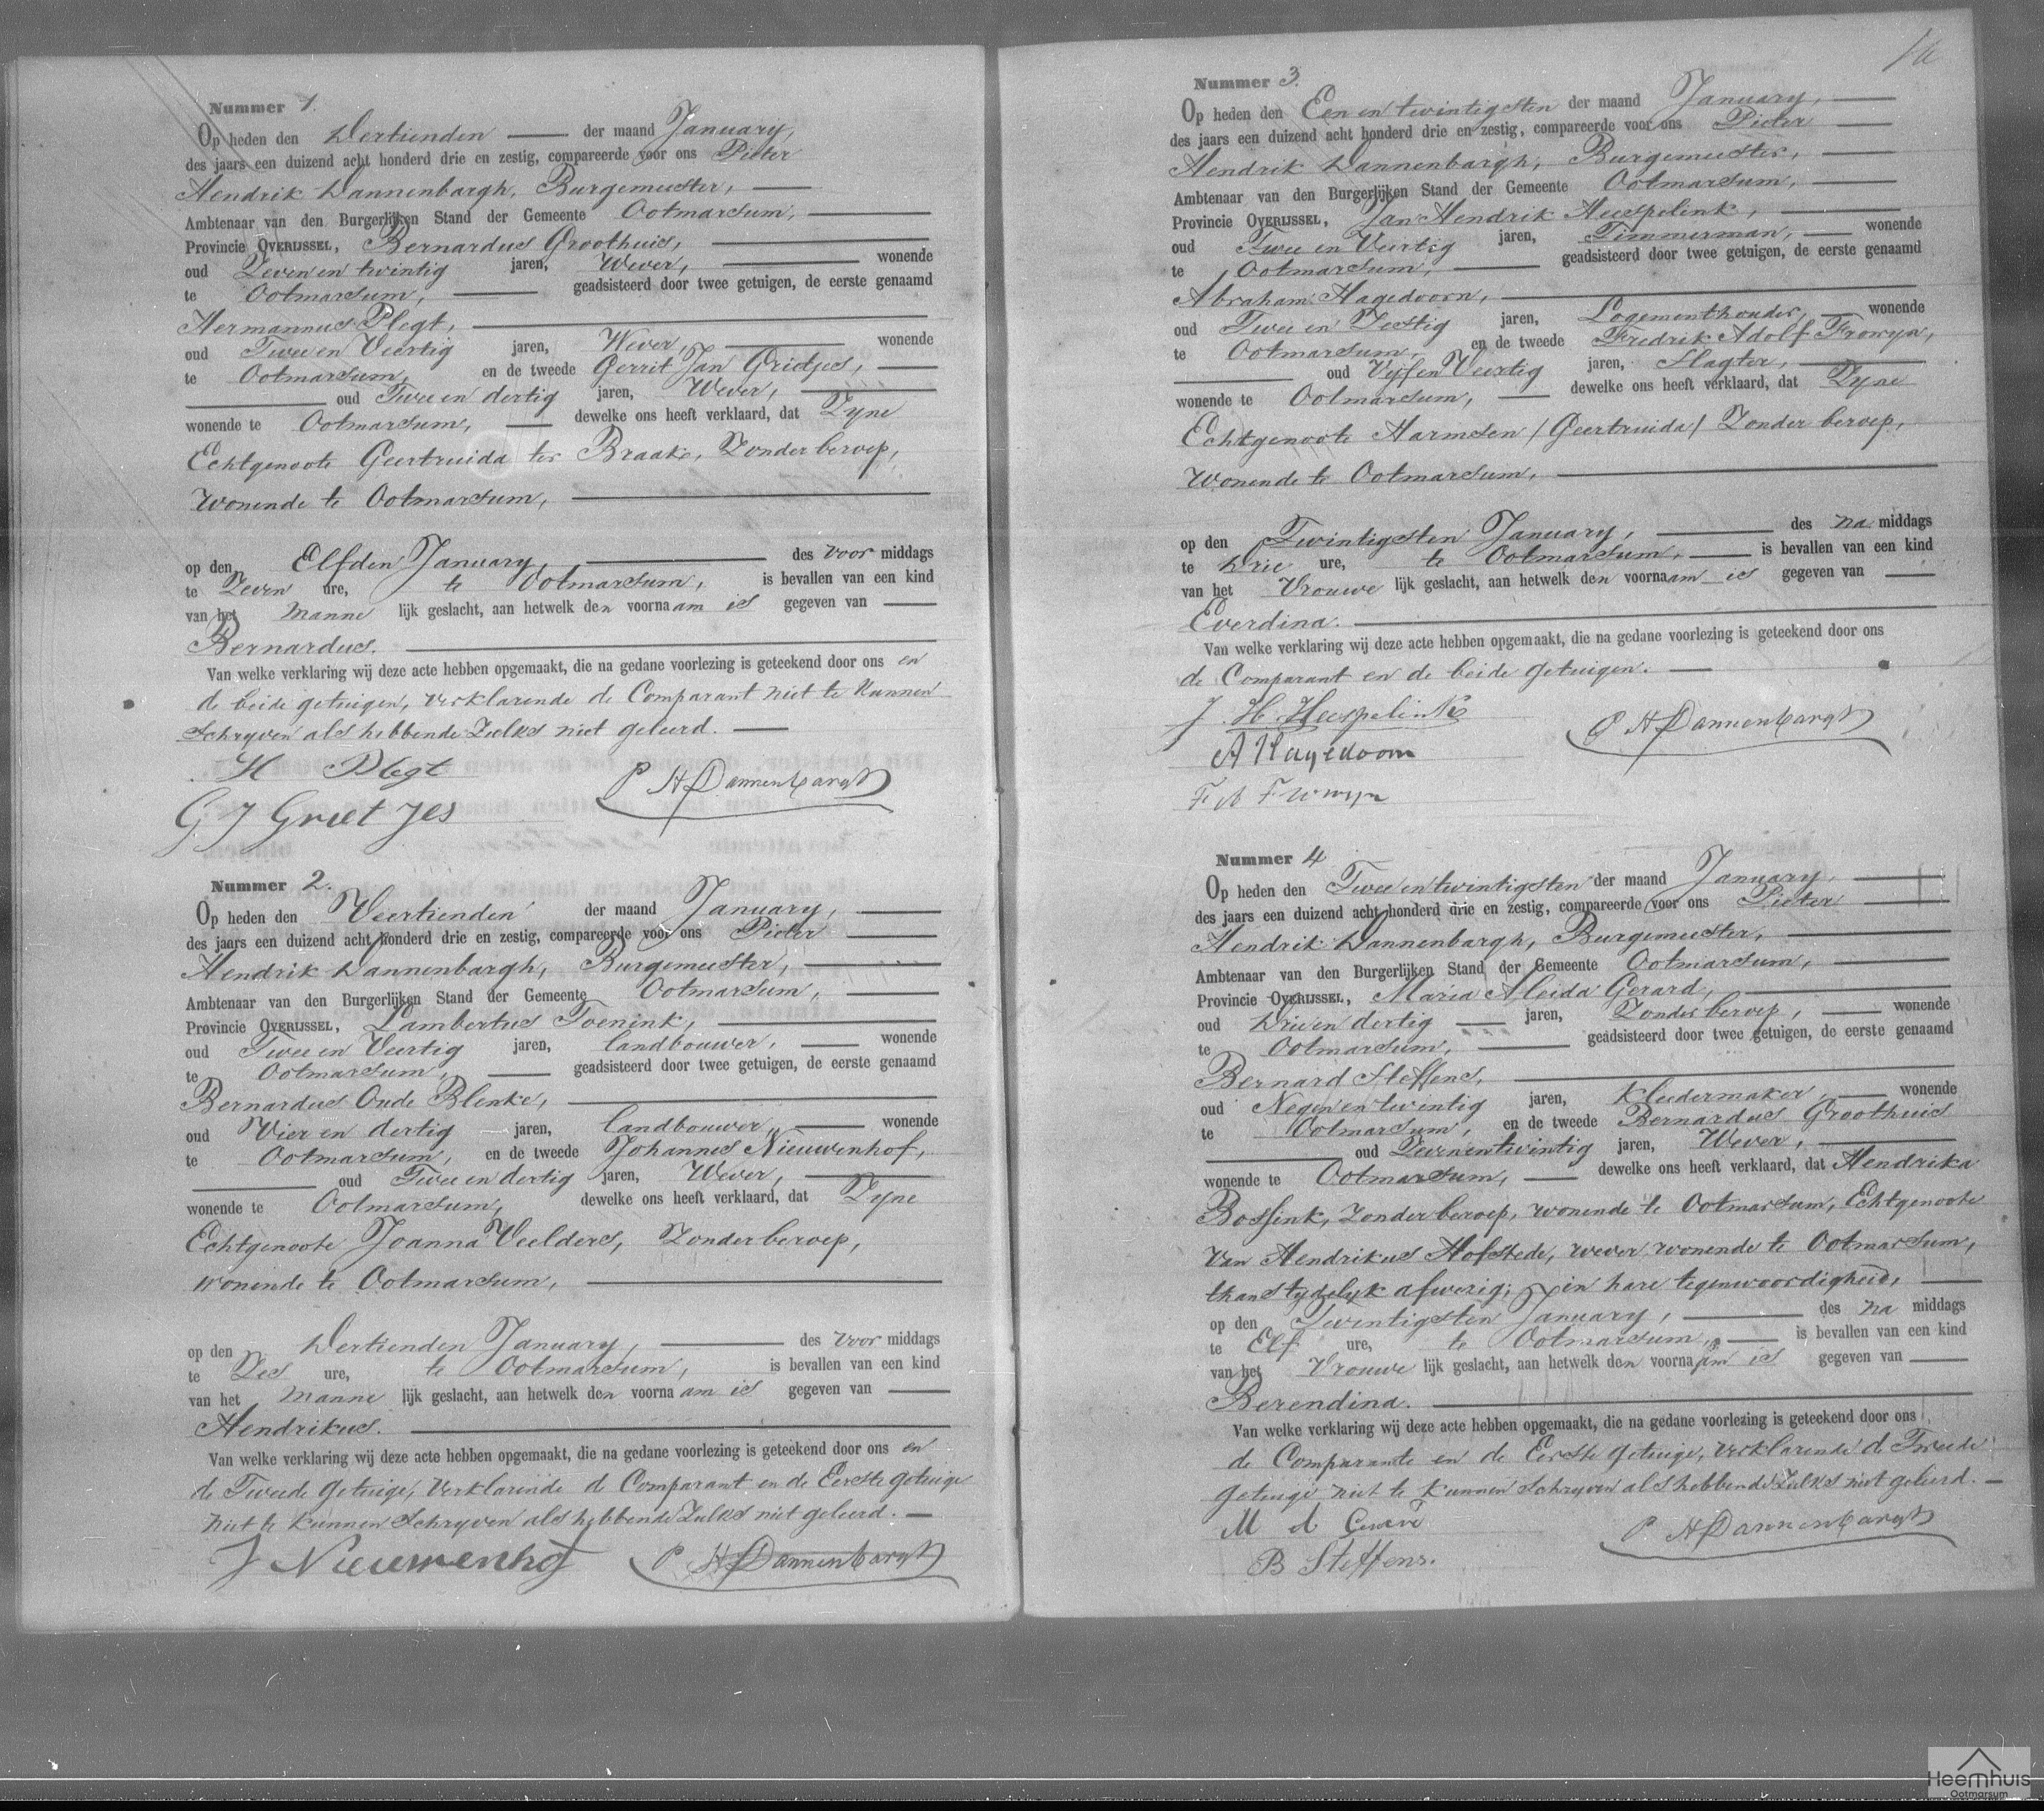 Nummer 1.
Op heden den Dertienden der maand January,
des jaars een duizend acht honderd drie en zestig, compareerde voor ons Pieter
Hendrik Dannenbargh, Burgemeester,
Ambtenaar van den Burgerlijken Stand der Gemeente Ootmarsum,
Provincie OVERIJSSEL, Bernardus Groothuis,
oud Zeven en twintig jaren, Wever, wonende
te Ootmarsum, geadsisteerd door twee getuigen, de eerste genaamd
Hermannus Plegt,
oud Twee en Veertig jaren, Wever, wonende
te Ootmarsum, en de tweede Gerrit Jan Grietjes,
oud Twee en dertig jaren, Wever,
wonende te Ootmarsum, dewelke ons heeft verklaard, dat Zyne
Echtgenoote Geertruida ter Braake, Zonder beroep,
Wonende te Ootmarsum,
op den Elfden January, des voor middags
te Zeven ure, te Ootmarsum, is bevallen van een kind
van het Manne lijk geslacht, aan hetwelk den voornaam is gegeven van
Bernardus.
Van welke verklaring wij deze acte hebben opgemaakt, die na gedane voorlezing is geteekend door ons en
de beide getuigen, verklarende de Comparant niet te kunnen
Schryven als hebbende Zulks niet geleerd.
H Plegt
P H Dannenbargh
G J Griet jes
Nummer 2.
Op heden den Veertienden der maand January,
des jaars een duizend acht honderd drie en zestig, compareerde voor ons Pieter
Hendrik Dannenbargh, Burgemeester,
Ambtenaar van den Burgerlijken Stand der Gemeente Ootmarsum,
Provincie OVERIJSSEL, Lambertus Toenink,
oud Twee en Veertig jaren, landbouwer, wonende
te Ootmarsum, geadsisteerd door twee getuigen, de eerste genaamd
Bernardus Oude Blenke,
oud Vier en dertig jaren, landbouwer, wonende
te Ootmarsum, en de tweede Johannes Nieuwenhof,
oud Twee en dertig jaren, Wever,
wonende te Ootmarsum, dewelke ons heeft verklaard, dat Zyne
Echtgenoote Joanna Veelders, Zonder beroep,
wonende te Ootmarsum,
op den Dertienden January, des voor middags
te Zes ure, te Ootmarsum, is bevallen van een kind
van het Manne lijk geslacht, aan hetwelk den voornaam is gegeven van
Hendrikus.
Van welke verklaring wij deze acte hebben opgemaakt, die na gedane voorlezing is geteekend door ons en
de Tweede getuige, verklarende de Comparant en de Eerste getuige
niet te kunnen Schryven als hebbende Zulks niet geleerd.
J Nieuwenhof
P H Dannenbargh
Nummer 3.
Op heden den Een en twintigsten der maand January,
des jaars een duizend acht honderd drie en zestig, compareerde voor ons Pieter
Hendrik Dannenbargh, Burgemeester,
Ambtenaar van den Burgerlijken Stand der Gemeente Ootmarsum,
Provincie OVERIJSSEL, Jan Hendrik Heespelink,
oud Twee en Veertig jaren, Timmerman, wonende
te Ootmarsum, geadsisteerd door twee getuigen, de eerste genaamd
Abraham Hagedoorn,
oud Twee en Zestig jaren, Logementhouder, wonende
te Ootmarsum, en de tweede Fredrik Adolf Frowyn,
oud Vyf en Veertig jaren, Slagter,
wonende te Ootmarsum, dewelke ons heeft verklaard, dat Zyne
Echtgenoote Harmsen /Geertruida/ Zonder beroep,
Wonende te Ootmarsum,
op den Twintigsten January, des na middags
te Drie ure, te Ootmarsum, is bevallen van een kind
van het Vrouwe lijk geslacht, aan hetwelk den voornaam is gegeven van
Everdina.
Van welke verklaring wij deze acte hebben opgemaakt, die na gedane voorlezing is geteekend door ons
de Comparant en de beide getuigen.
J. H. Heespelink
P H Dannenbargh
A Hagedoorn
F A Frowyn
Nummer 4
Op heden den Twee en twintigsten der maand January,
des jaars een duizend acht honderd drie en zestig, compareerde voor ons Pieter
Hendrik Dannenbargh, Burgemeester,
Ambtenaar van den Burgerlijken Stand der Gemeente Ootmarsum,
Provincie OVERIJSSEL, Maria Aleida Gerard,
oud Drie en dertig jaren, Zonder beroep, wonende
te Ootmarsum, geadsisteerd door twee getuigen, de eerste genaamd
Bernard Steffens,
oud Negen en twintig jaren, Kleedermaker, wonende
te Ootmarsum, en de tweede Bernardus Groothuis
oud Zeven en twintig jaren, Wever,
wonende te Ootmarsum, dewelke ons heeft verklaard, dat Hendrika
Bossink, Zonder beroep, wonende te Ootmarsum, Echtgenoote
van Hendrikus Hofstede, wever wonende te Ootmarsum,
thans tydelyk afwezig, in hare tegenwoordigheid,
op den Twintigsten January, des na middags
te Elf ure, te Ootmarsum, is bevallen van een kind
van het Vrouwe lijk geslacht, aan hetwelk den voornaam is gegeven van
Berendina.
Van welke verklaring wij deze acte hebben opgemaakt, die na gedane voorlezing is geteekend door ons
de Comparante en de Eerste getuige, verklarende de Tweede
getuige niet te kunnen Schryven als hebbende Zulks niet geleerd.
M A Gerard
P H Dannenbargh
B Steffens.
Heemhuis
Ootmarsum